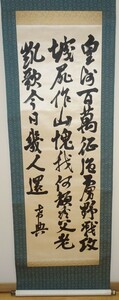 皇師百萬征強虜野戰攻
城屍作山愧我何顏看父老
凱歌今日幾人還 希典